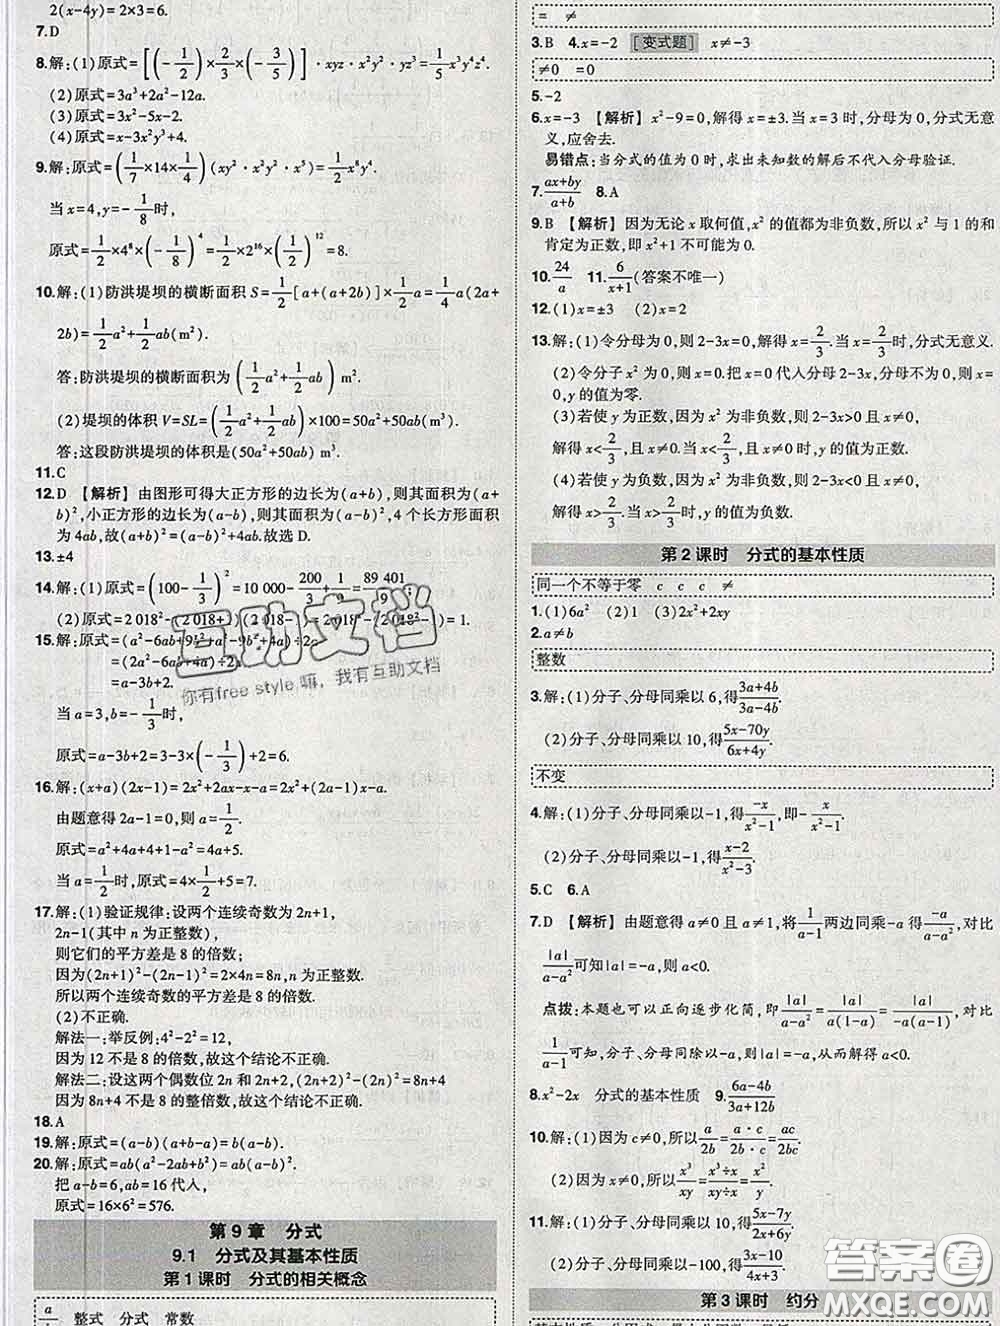 2(x-4y)=2×3=6.
7.D
8.解:(1)原式=[(-1/2)×2/3×(-3/5)]·xyz·x²y²·yz³=1/5x³y⁴z⁴.
(2)原式=3a³+2a²-12a.
(3)原式=3x²-5x-2.
(4)原式=x-3x²y³+4.
9.解:原式=(1/7×14×1/4)(xy²·x²y²·x⁵)=1/2x⁸y⁴.
当x=4,y=-1/8时,
原式=1/2×4⁸×(-1/8)⁴=1/2×2¹⁶×(1/2)¹²=8.
10.解:(1)防洪堤坝的横断面积S=1/2[a+(a+2b)]×1/2a=1/4a(2a+
2b)=1/2a²+1/2ab(m²).
答:防洪堤坝的横断面积为(1/2a²+1/2ab)m².
(2)堤坝的体积V=SL=(1/2a²+1/2ab)×100=50a²+50ab.
答:这段防洪堤坝的体积是(50a²+50ab)m³.
11.C
12.D 【解析】由图形可得大正方形的边长为(a+b),则其面积为(a+
b)²,小正方形的边长为(a-b),则其面积为(a-b)²,4个长方形面积
为4ab,故(a+b)²=(a-b)²+4ab.故选D.
13.±4
14.解:(1)原式=(100-1/3)²=10 000-200/3+1/9=89 401/9.
(2)原式=2 018²-(2 018+1)(2 018-1)=2 018²-(2 018²-1)=1.
15.解:原式=(a²-6ab+9b²+a²-9b²+4a)÷2a
=(2a²-6ab+4a)÷2a
=a-3b+2.
当a=3,b=-1/3时,
原式=a-3b+2=3-3×(-1/3)+2=6.
16.解:(x+a)(2x-1)=2x²+2ax-x-a=2x²+(2a-1)x-a.
由题意得2a-1=0,则a=1/2.
原式=a²+4a+4+1-a²=4a+5.
当a=1/2时,原式=4×1/2+5=7.
17.解:(1)验证规律:设两个连续奇数为2n+1,
2n-1(其中n为正整数),
则它们的平方差是8的倍数;
因为(2n+1)²-(2n-1)²=2×4n=8n,n为正整数.
所以两个连续奇数的平方差是8的倍数.
(2)不正确.
解法一:举反例:4²-2²=12,
因为12不是8的倍数,故这个结论不正确.
解法二:设这两个偶数位2n和2n+2,(2n+2)²-(2n)²=8n+4
因为8n+4不是8的整倍数,故这个结论不正确.
18.A
19.解:原式=(a-b)(a+b-a)=b(a-b).
20.解:原式=ab(a²-2ab+b²)=ab(a-b)².
把a-b=6,ab=16代入,
原式=16×6²=576.
第9章 分式
9.1 分式及其基本性质
第1课时 分式的相关概念
a 整式 分式 常数
= ≠
3.B 4.x=-2 [变式题] x≠-3
≠0 =0
5.-2
6.x=-3 【解析】x²-9=0,解得x=±3.当x=3时,分母为0,分式无意
义,应舍去.
易错点:当分式的值为0时,求出未知数的解后不代入分母验证.
7.(ax+by)/(a+b) 8.A
9.B 【解析】因为无论x取何值,x²的值都为非负数,所以x²与1的和
肯定为正数,即x²+1不可能为0.
10.24/a 11.6/(x+1)(答案不唯一)
12.(1)x=±3 (2)x=2
13.解:(1)令分母为0,则2-3x=0,解得x=2/3.当x=2/3时,分式无意义.
(2)令分子x²为0,则x=0.把x=0代入分母2-3x,分母不为0,则x=
0,y的值为零.
(3)若使y为正数,因为x²为非负数,则2-3x>0且x≠0,
解得x<2/3,且x≠0.当x<2/3,且x≠0时,y的值为正数.
(4)若使y为负数,因为x²为非负数,则2-3x<0且x≠0,
解得x>2/3.当x>2/3时,y的值为负数.
第2课时 分式的基本性质
同一个不等于零 c c c ≠
1.(1)6a² (2)1 (3)2x²+2xy
2.a≠b
整数
3.解:(1)分子、分母同乘以6,得(3a+4b)/(3a-4b).
(2)分子、分母同乘以10,得(5x-70y)/(6x+4y).
不变
4.解:(1)分子、分母同乘以-1,得-x/(x²-1),即-x/(x²-1).
(2)分子、分母同乘以-1,得(x-2)/(x²-3).
5.C 6.A
7.D 【解析】由题意得a≠0且a≠1,将1/(a-1)两边同乘-a得-a/(a-a²),对比
|a|/(a-a²)可知|a|=-a,则a<0.
点拨:本题也可以正向逐步化简,即|a|/(a-a²)=|a|/(a(1-a))=|a|/(-a(a-1)),对比
1/(a-1)可知,分子、分母同除以-a,则|a|=-a,所以解得a<0.
8.x²-2x 分式的基本性质 9.(6a-4b)/(3a+12b)
10.解:(1)因为c≠0,所以a/2b=(a·c)/(2b·c)=ac/2bc.
(2)因为x≠0,所以x³/xy=(x³÷x)/(xy÷x)=x²/y.
11.解:(1)分子、分母同乘以10,得(5x-7y)/(2x+6y).
(2)分子、分母同乘以-100,得(3x-10)/(4x+3).
第3课时 约分
互助文档
你有free style嘛,我有互助文档
答案圈
MXQE.COM